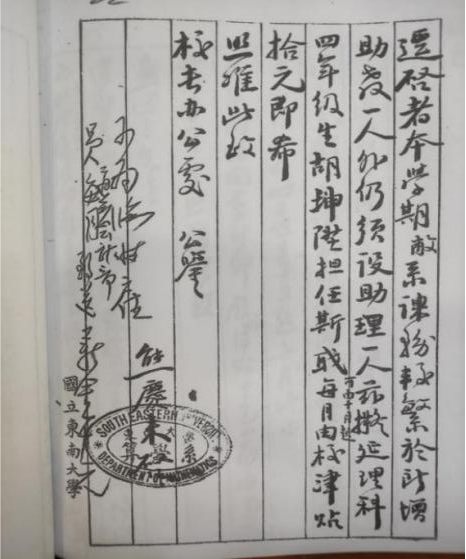 逕啓者本學期敝系課務較繁於所增
助教一人外仍须设助理一人兹擬延理科
四年级生胡坤陞担任斯職每月由校津贴
可由十月起
拾元即希
照准此致
校长办公處 公鑒
熊慶來
SOUTH EASTERN
DEPARTMENT OF MATHEMATICS
國立東南大學